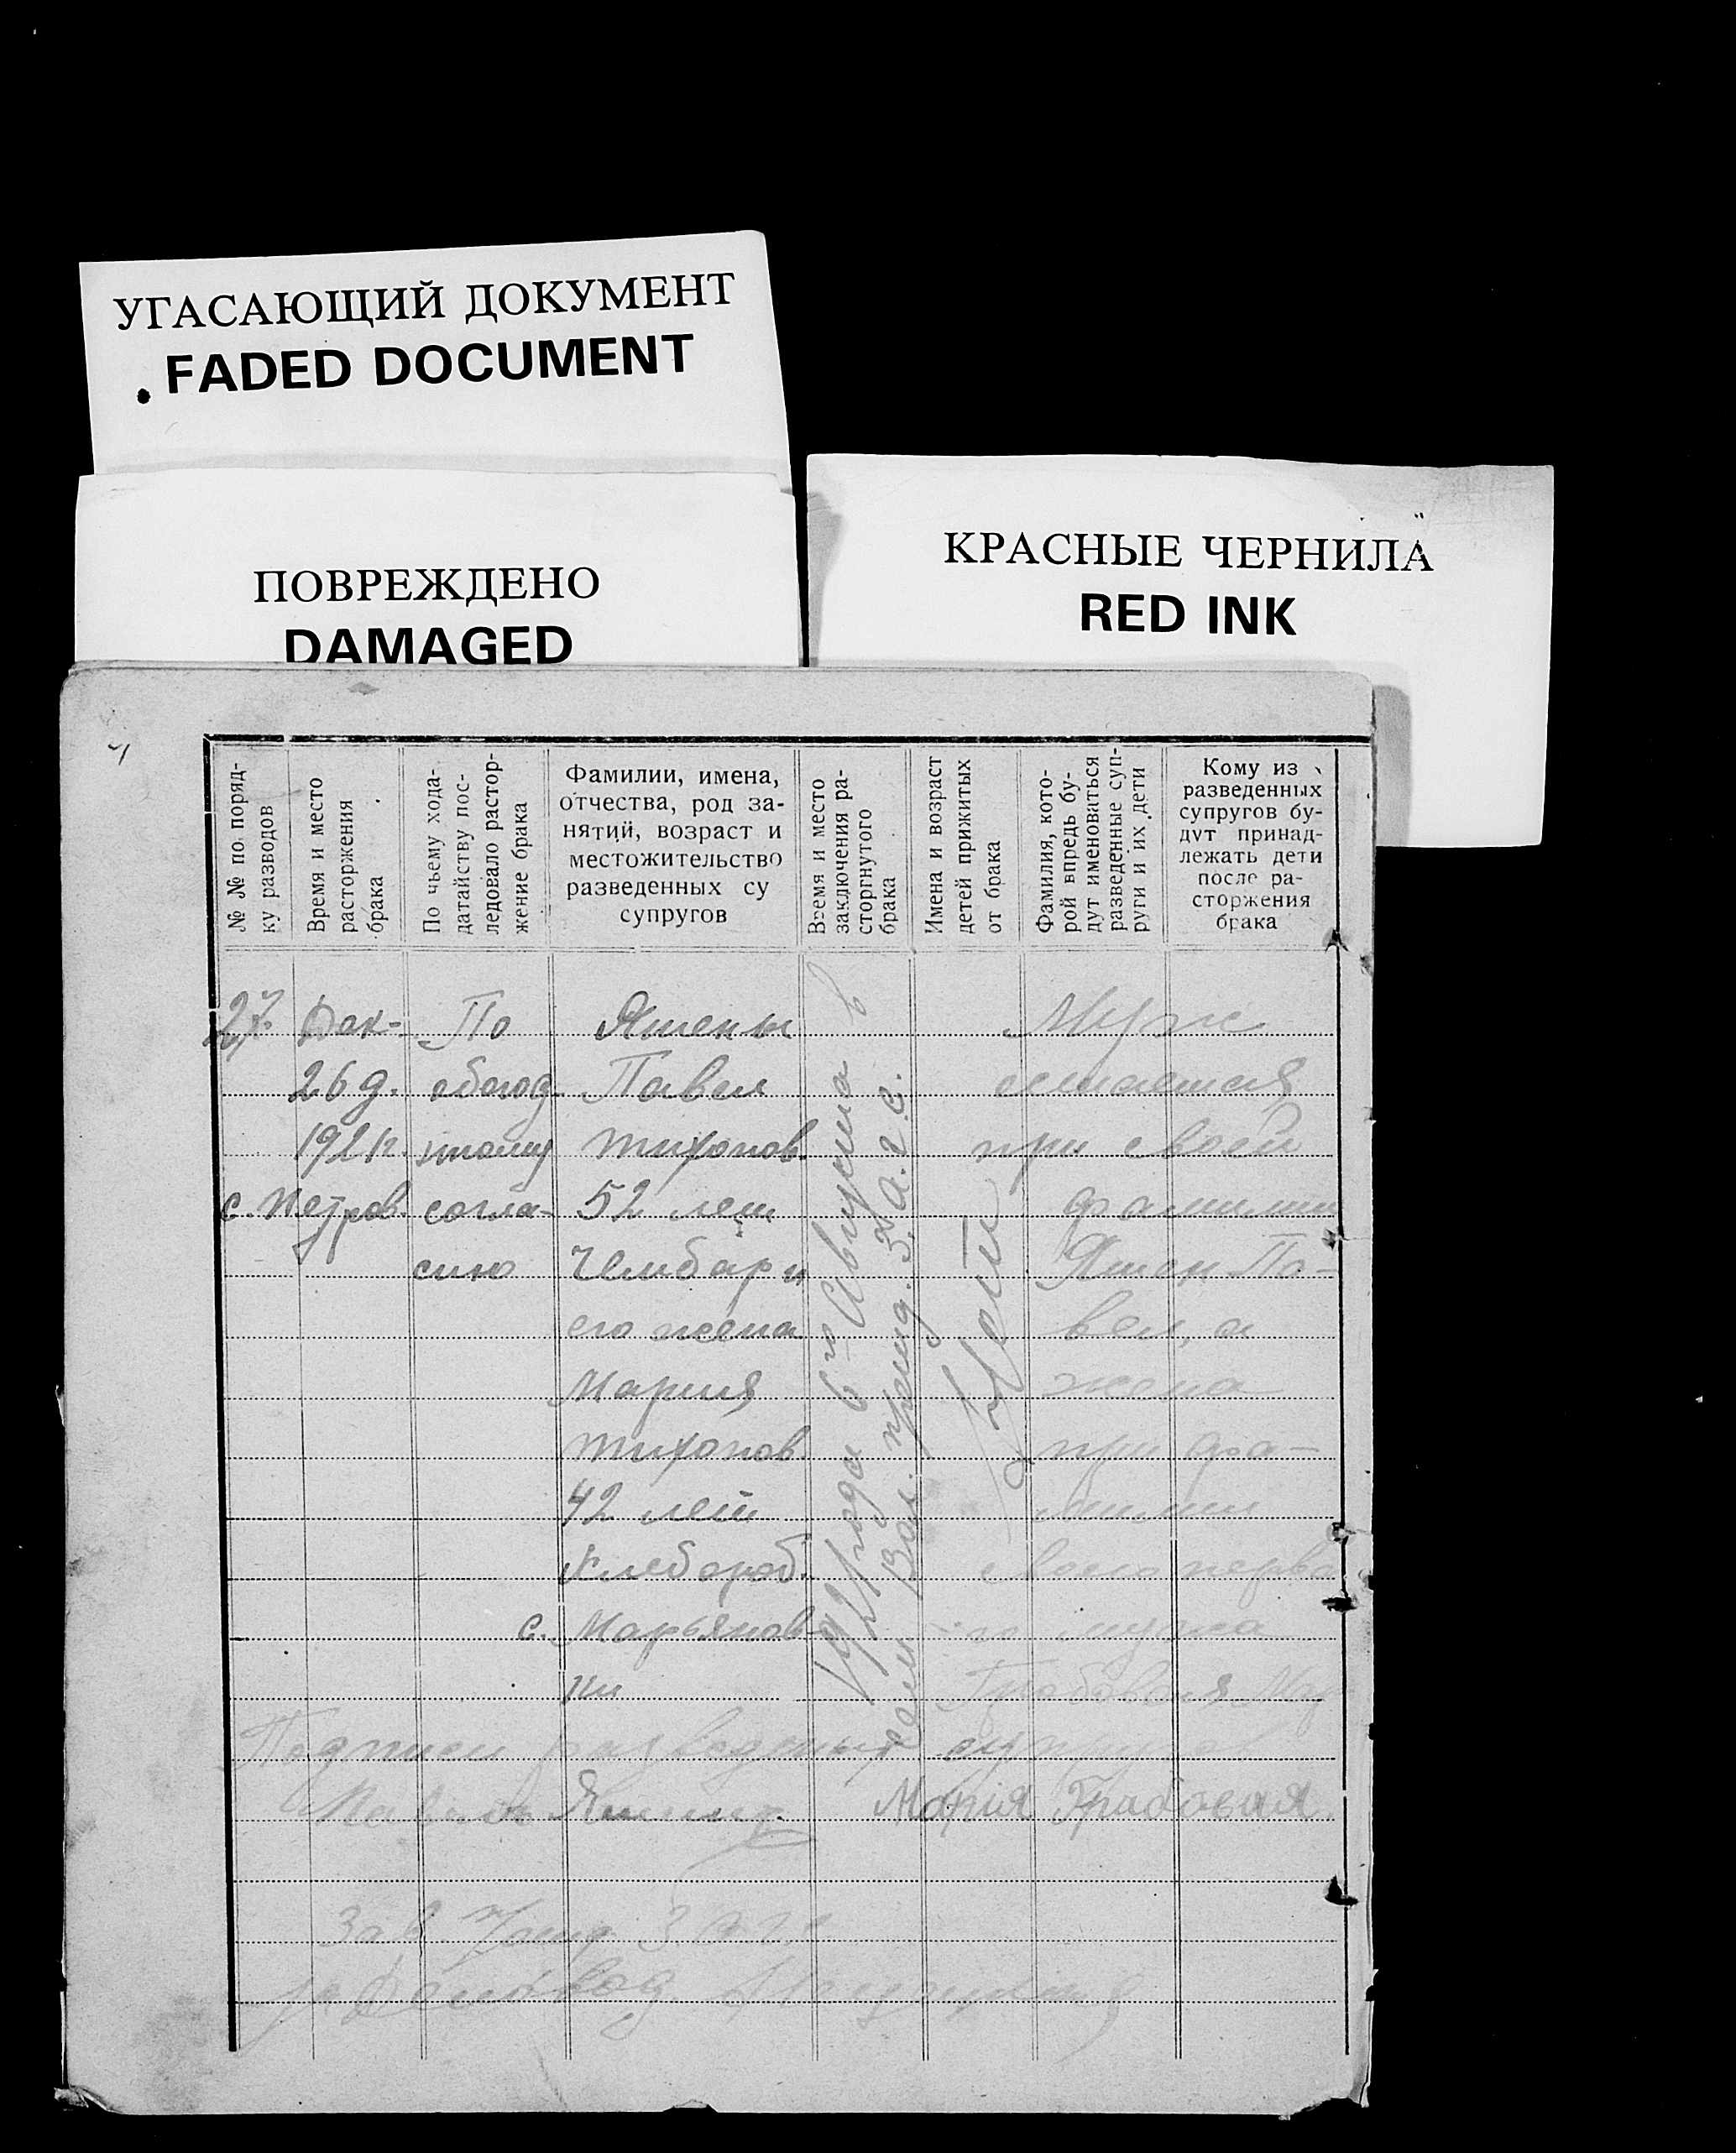 УГАСАЮЩИЙ ДОКУМЕНТ
FADED DOCUMENT
ПОВРЕЖДЕНО
DAMAGED
КРАСНЫЕ ЧЕРНИЛА
RED INK
№ № по поряд-
ку разводов
Время и место
расторжения
брака
По чьему хода-
датайству пос-
ледовало растор-
жение брака
Фамилии, имена,
отчества, род за-
нятий, возраст и
местожительство
разведенных су
супругов
Время и место
заключения ра-
сторгнутого
брака
Имена и возраст
детей прижитых
от брака
Фамилия, кото-
рой впредь бу-
дут именоваться
разведенные суп-
руги и их дети
Кому из
разведенных
супругов бу-
дут принад-
лежать дети
после ра-
сторжения
брака
27.
26 д.
с. Петров.
По
обоюд-
согла-
сию
Павел
Тихонов.
52 лет
его жена
Мария
Тихонов.
42 лет
Хлебороб.
с. Марьянов-
ки
1921 года 6го Августа в
З.А.Г.С.
Муж
остается
при своей
фамилии
Па-
вел, а
жена
при фа-
милии
своего перво
го мужа
Грабовая Мар
Подписи разведеных супругов
Марія Грабовая
Зав. З.А.Г.С.